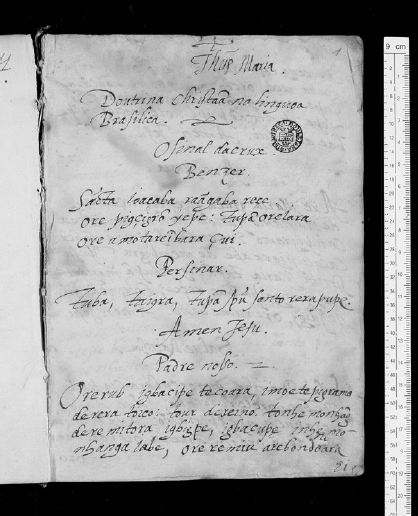 1
Jhũs Maria.
Doutrina Christaã na linguoa
Brasilica.
O sinal da crux.
Benzer.
Sãcta Joacaba raãgaba rece
ore pıçıro yepe: tupã orelara
ore amotareỹbara çui.
Persinar.
Tuba, tayra, tupã spũ santo rera pupe.
Amen Jesu.
Padre nosso.
Orerub igbacipe tecoara, imoete pigrama
de rera toico: tour de reino: tonhe monhãg
de remitora igbigpe, igbacupe inhe mo-
nhanga labe, ore remiu arebondoara